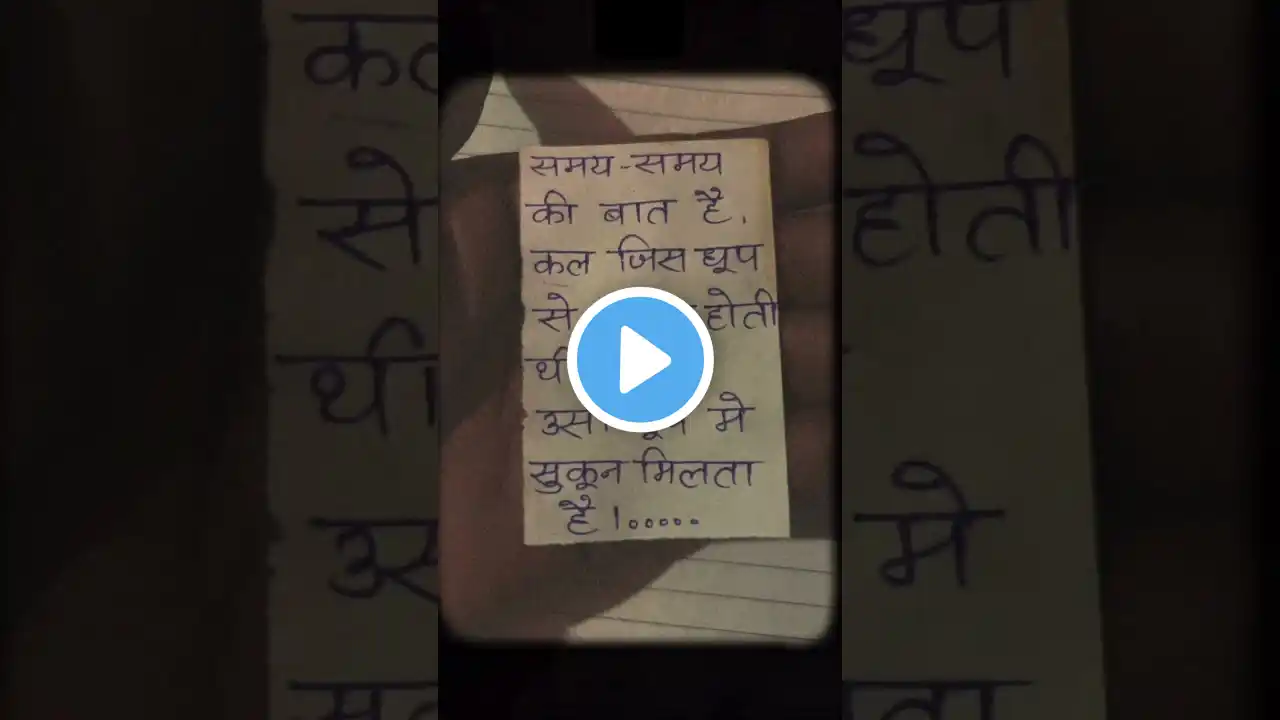 समय-समय
की बात है.
कल जिस धूप
से होती
थी
उसी धूप मे
सुकून मिलता
है।०००००